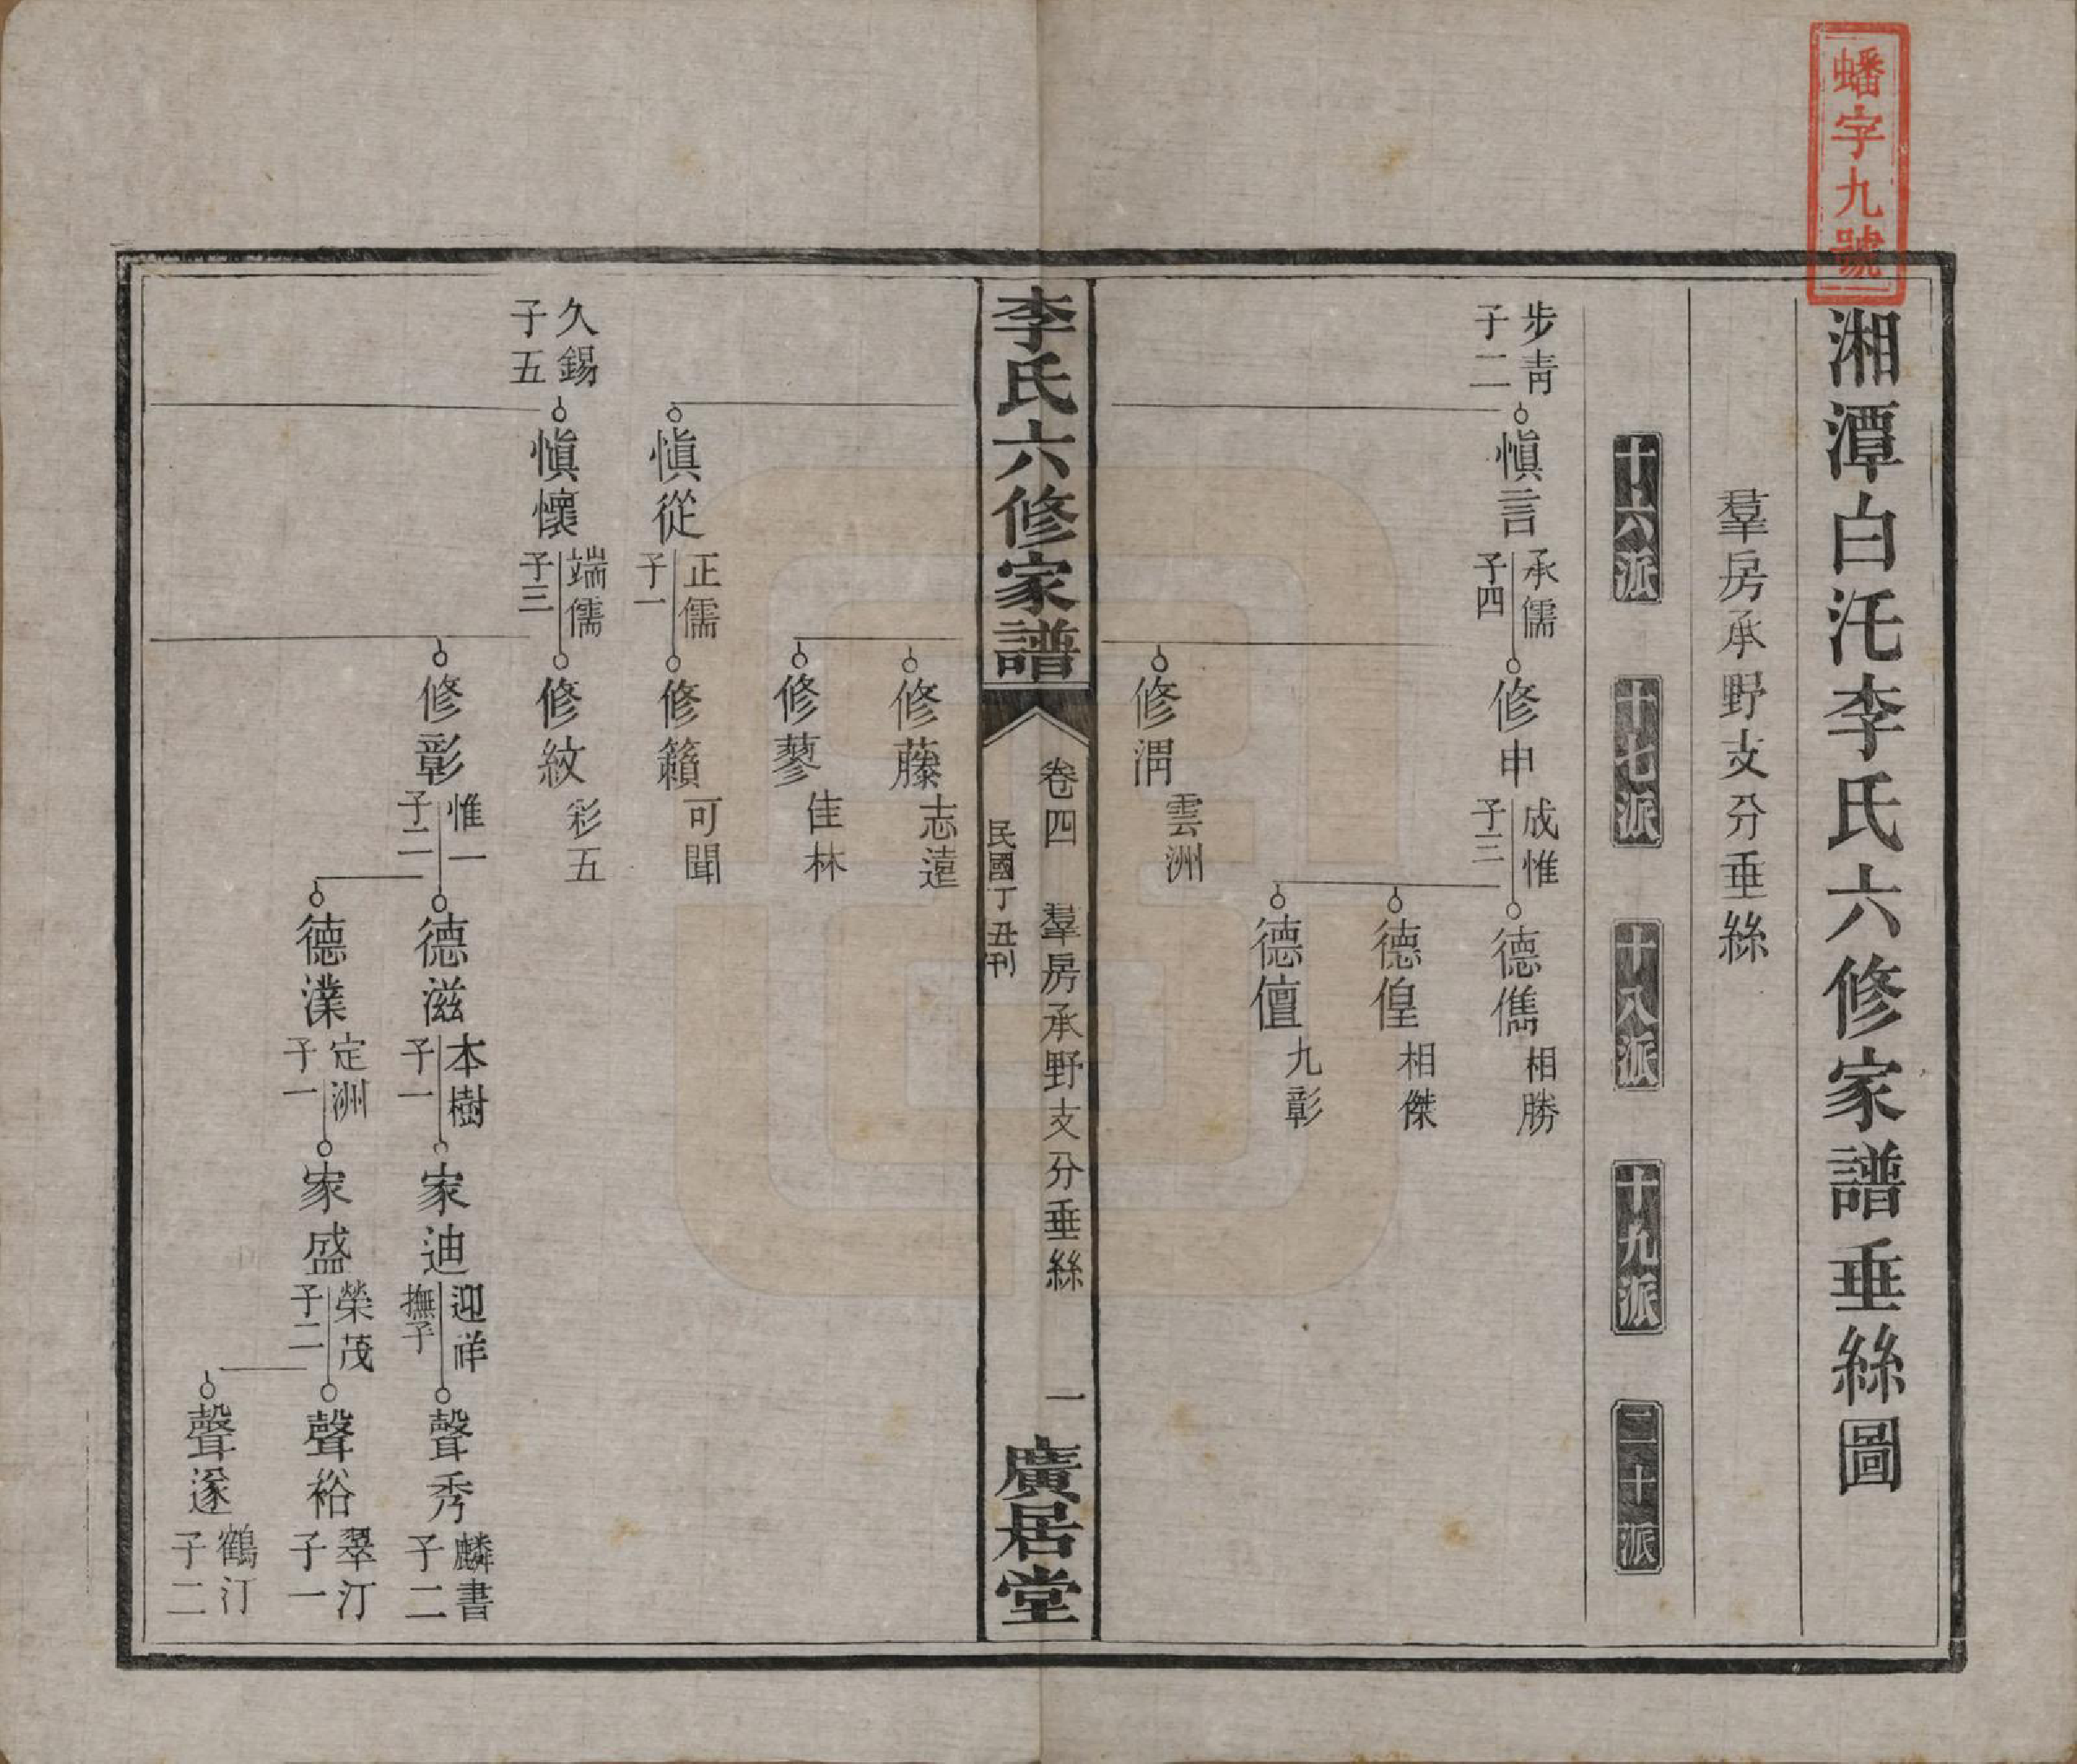 蟠字九號
湘潭白汑李氏六修家譜垂絲圖
羣房承野支分垂絲
十六派
十七派
十八派
十九派
二十派
步青
子二
慎言
承儒
子四
修申
成惟
子三
德儁
相勝
德偟
相傑
德儃
九彰
修渭
雲洲
李氏六修家譜
卷四
羣房承野支分垂絲
一
民國丁丑刊
廣居堂
修藤
志遠
修蓼
佳林
慎從
正儒
子一
修籟
可聞
久錫
子五
慎懷
端儒
子三
修紋
彩五
修彰
惟一
子二
德滋
本樹
子一
家迪
迎祥
撫子
聲秀
麟書
子二
德濮
定洲
子一
家盛
榮茂
子二
聲裕
翠汀
子一
聲遂
鶴汀
子二